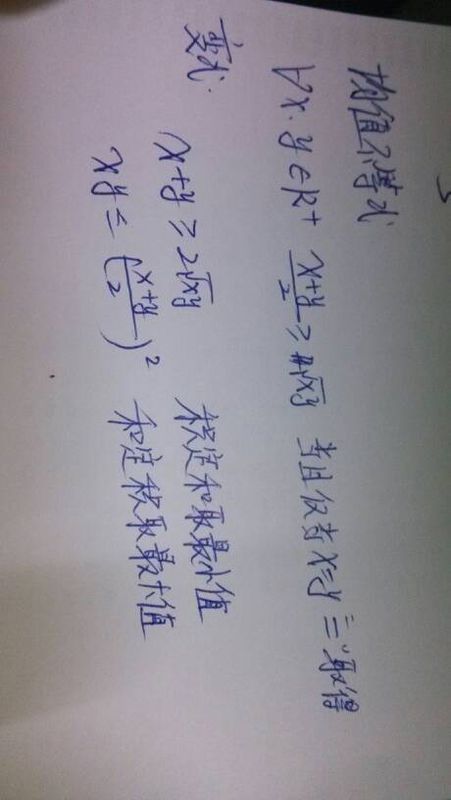 均值不等式
∀x.y∈R+ (x+y)/2 ≥ √xy 当且仅当x=y "="取得
变式.
x+y ≥ 2√xy 积定和取最小值
xy ≤ ((x+y)/2)² 和定积取最大值